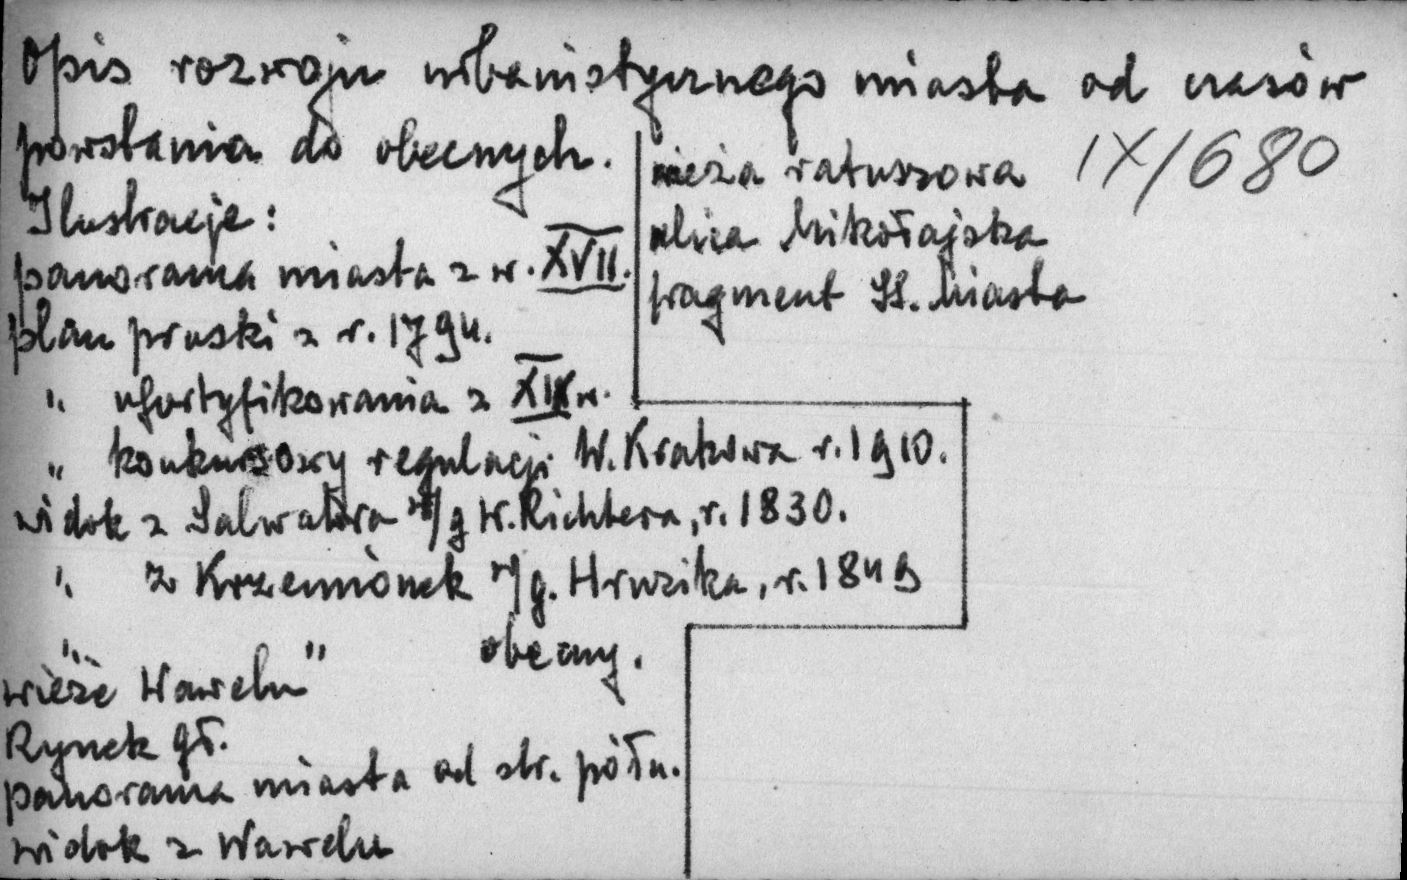 Opis rozwoju urbanistycznego miasta od czasów
powstania do obecnych.
IX/680
Ilustracje:
panorama miasta z w. XVII.
plan pruski z r. 1794.
" ufortyfikowania z XIX w.
" konkursowy regulacji W. Krakowa r. 1910.
widok z Salwatora w/g W. Richtera, r. 1830.
" z Krzemionek w/g. Hruzika, r. 1849
" " obecny.
wieże Wawelu
Rynek gł.
panorama miasta od str. półn.
widok z Wawelu
wieża ratuszowa
ulica Mikołajska
fragment St. Miasta